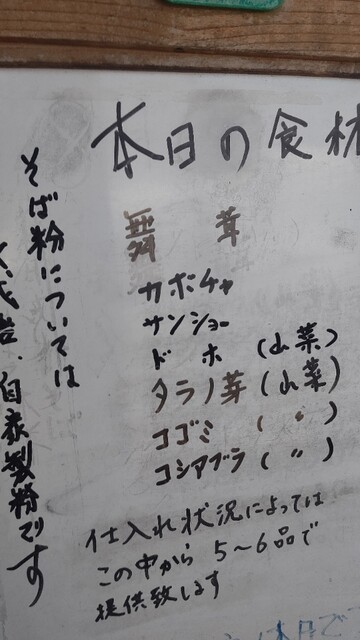 本日の食材
舞茸
カボチャ
サンショー
ドホ (山菜)
タラノ芽 (山菜)
コゴミ ( 〃 )
コシアブラ ( 〃 )
仕入れ状況によっては
この中から 5～6品で
提供致します
そば粉については
自家製粉です